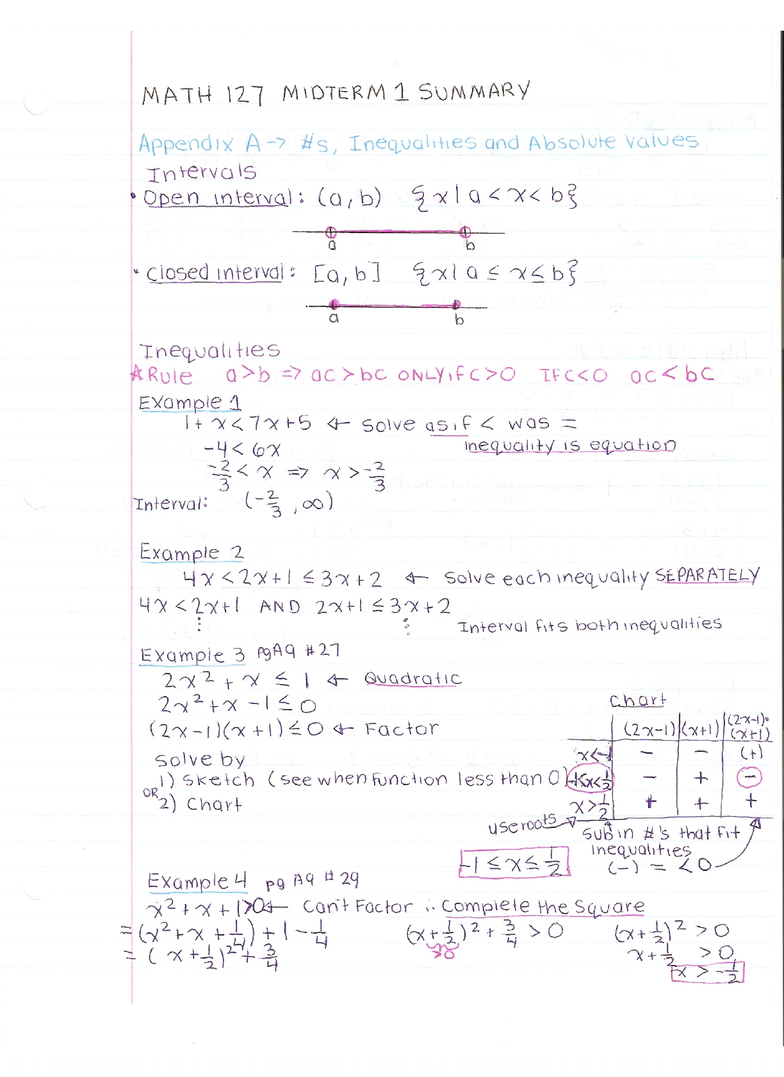 MATH 127 MIDTERM 1 SUMMARY
Appendix A → #s, Inequalities and Absolute Values
Intervals
• Open interval: (a, b) {x | a < x < b}
a b
• Closed interval: [a, b] {x | a ≤ x ≤ b}
a b
Inequalities
☆ Rule a>b ⇒ ac > bc ONLY if C>0 IF C<0 ac < bc
Example 1
1 + x < 7x + 5 ← Solve as if < was =
-4 < 6x inequality is equation
-2/3 < x ⇒ x > -2/3
Interval: (-2/3, ∞)
Example 2
4x < 2x+1 ≤ 3x+2 ← Solve each inequality SEPARATELY
4x < 2x+1 AND 2x+1 ≤ 3x+2
⋮ ⋮ Interval fits both inequalities
Example 3 pg A9 #27
2x² + x ≤ 1 ← Quadratic
2x² + x - 1 ≤ 0
(2x-1)(x+1) ≤ 0 ← Factor
Solve by
1) Sketch (see when function less than 0)
OR 2) Chart
Chart
(2x-1) (x+1) (2x-1)•(x+1)
x<-1 - - (+)
-1<x<1/2 - + -
x>1/2 + + +
use roots
Sub in #'s that fit
inequalities
(-) = <0
-1 ≤ x ≤ 1/2
Example 4 pg A9 #29
x² + x + 1 > 0 ← Can't Factor ∴ Complete the Square
= (x² + x + 1/4) + 1 - 1/4 (x + 1/2)² + 3/4 > 0 (x + 1/2)² > 0
= (x + 1/2)² + 3/4 x + 1/2 > 0
x > -1/2